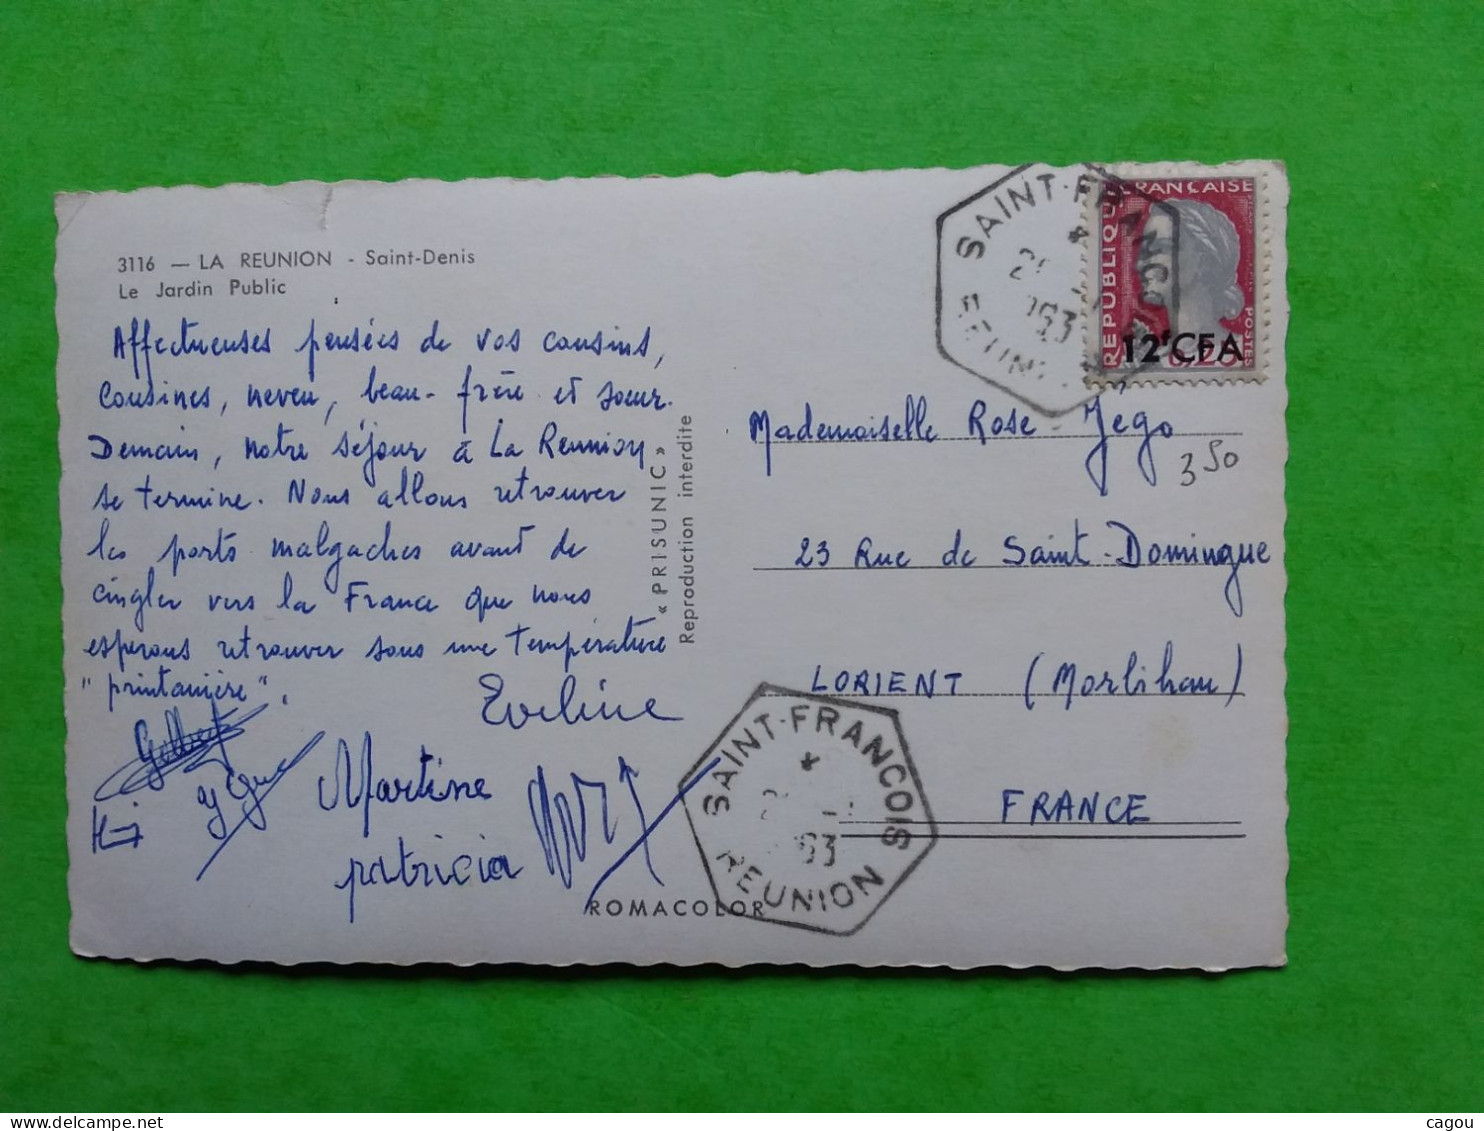 3116 — LA REUNION - Saint-Denis
Le Jardin Public
Affectueuses pensées de vos cousins,
cousines, neveu, beau-frère et soeur.
Demain, notre séjour à La Reunion
se termine. Nous allons retrouver
les ports malgaches avant de
cingler vers la France que nous
esperons retrouver sous une température
"printanière".
Eveline
Gilbert
Martine
patricia
« PRISUNIC »
Reproduction interdite
ROMACOLOR
SAINT-FRANCOIS
REUNION
63
REPUBLIQUE FRANÇAISE
POSTES
12F CFA
SAINT-FRANCOIS
63
REUNION
Mademoiselle Rose Jégo
350
23 Rue de Saint-Domingue
LORIENT (Morbihan)
FRANCE
cagou